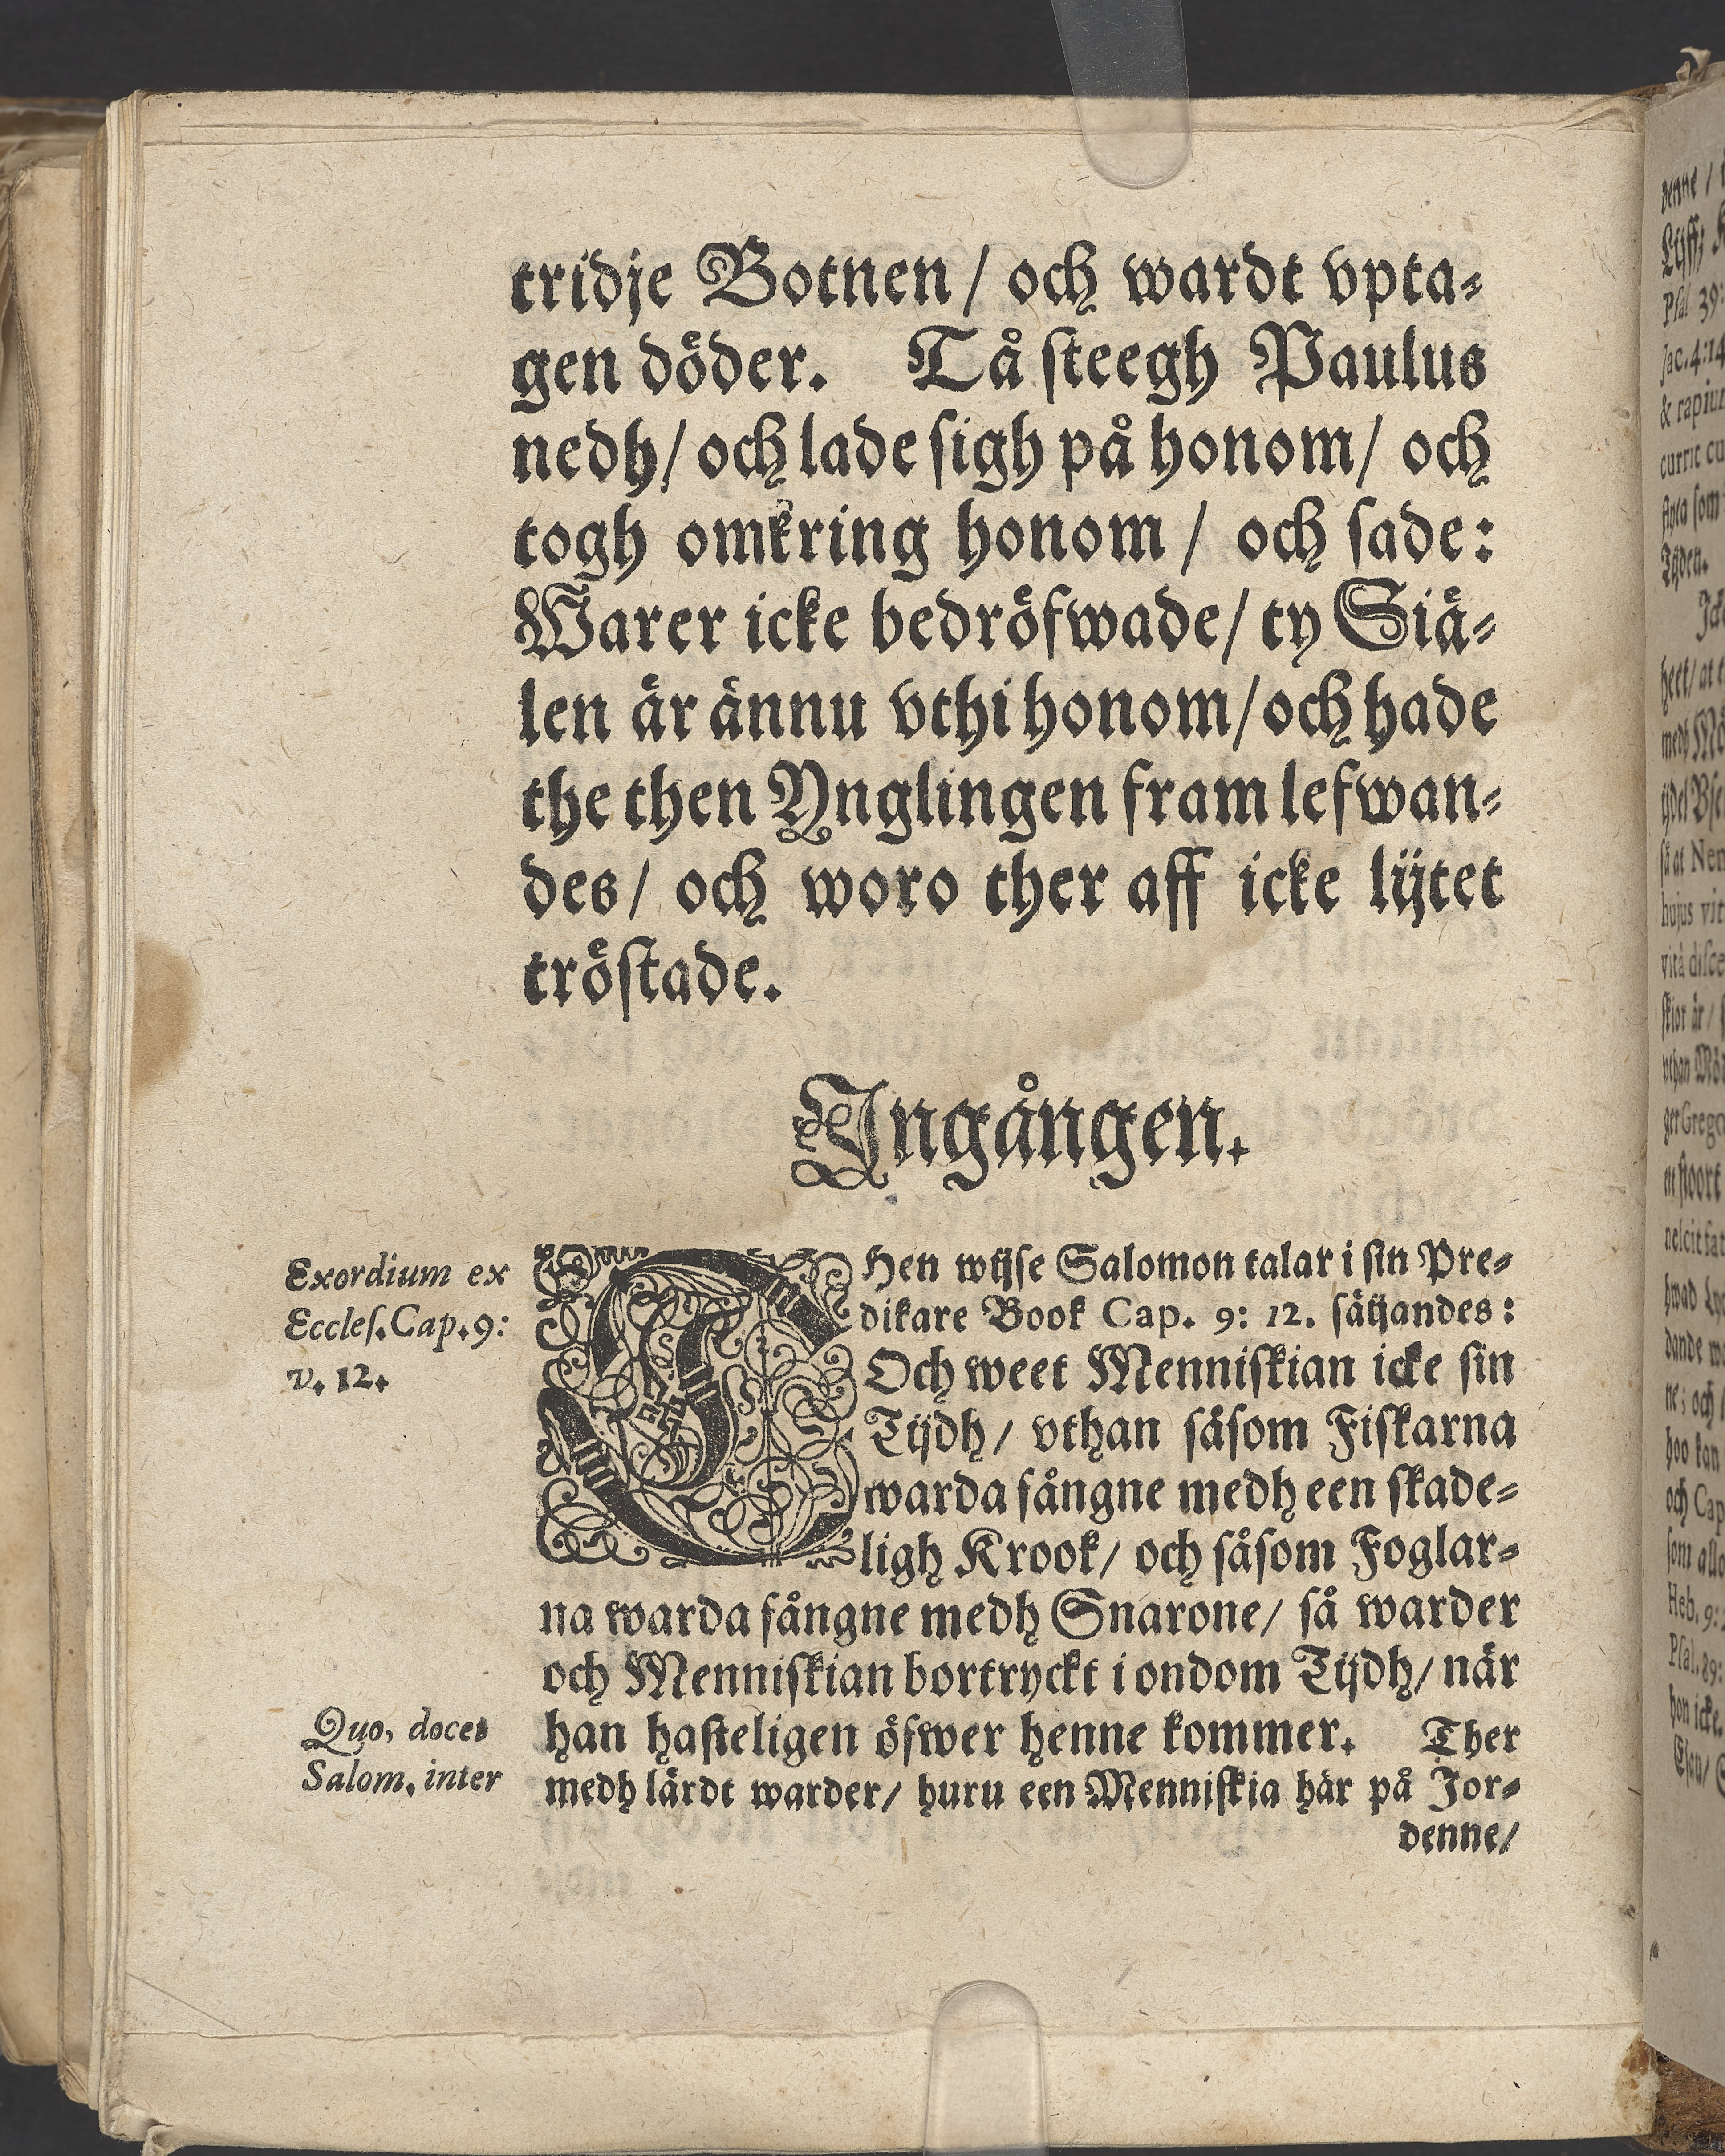 tridje Botnen / och wardt vpta-
gen döder. Tå steegh Paulus
nedh / och lade sigh på honom / och
togh omkring honom / och sade:
Warer icke bedröfwade / ty Siä-
len är ännu vthi honom / och hade
the then Ynglingen fram lefwan-
des / och woro ther aff icke lijtet
tröstade.
Ingången.
Exordium ex
Eccles. Cap. 9:
v. 12.
THen wijse Salomon talar i sin Pre-
dikare Book Cap. 9: 12. säijandes:
Och weet Menniskian icke sin
Tijdh / vthan såsom Fiskarna
warda fångne medh een skade-
ligh Krook / och såsom Foglar-
na warda fångne medh Snarone / så warder
och Menniskian bortryckt i ondom Tijdh / när
han hasteligen öfwer henne kommer. Ther
medh lärdt warder / huru een Menniskia här på Jor-
denne /
Quo, docet
Salom. inter